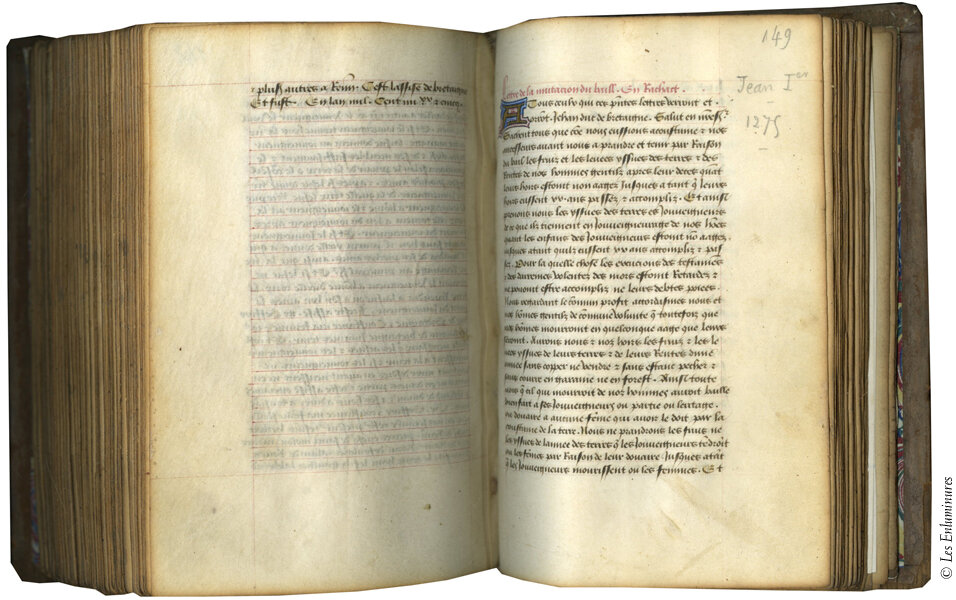 plus autres a Reññ. Cest lassise de bretaigne
Et fust. En lan mil. Cent iiii xx & cincq
149
Jean Ier
1275
Lettre de la mutacion du baill. En Rachat.
A Tous ceulx qui ces pñtes lettres verront et
orront. Jehan duc de bretaigne. Salut en
Sachent tous que cõe nous eussions acoustume & nos
ancesseurs avant nous a prandre et tenir par Raison
du bail les fruiz et les levees yssues des terres & des
Rentes de nos hommes gentilz apres leur deces quãt
leurs hoirs estoint non aagez Jusques a tant q̃ leurs
hoirs eussent xx. ans passez & accompliz. Et ainsi
prenions nous les yssues des terres es Jouveigneurs
de ce que ilz tiennent en Jouveigneurage de nos hões
quant les enfans des Jouveigneurs estoint nõ aagez.
Jusques atant quilz eussent xx ans accompliz & pas
sez. Pour la quelle chose les execucions des testamẽs
& des darremes volentez des mors estoint Retardez &
ne povoint estre accompliz ne leurs debtes poiees.
Nous regardant le cõmun profit accordasmes nous et
nos hõmes gentilz de cõmune volunte q̃ toutefoiz que
nos hõmes mourront en quelconque aage que leurs
seront. Aurons nous & noz hoirs les fruiz & les le
vees yssues de leurs terres & de leurs Rentes dune
annee sans copper ne vendre & sans estanc pecher &
sans courre en garanne ne en forest. Ainsi toute
voies q̃ cil qui mourroit de noz hommes avoit baille
bienfait a ses Jouveigneurs ou partie ou heritage.
ou douaire a aucune fẽme qui avoir le doit par la
coustume de la terre. Nous ne prandrons les fruiz ne
les yssues de lannee des terres q̃ les Jouveigneurs tẽdroit
ou les fẽmes par Raison de leur douaire Jusques atãt
q̃ les Jouveigneurs mourissent ou les femmes. Et
© Les Enluminures